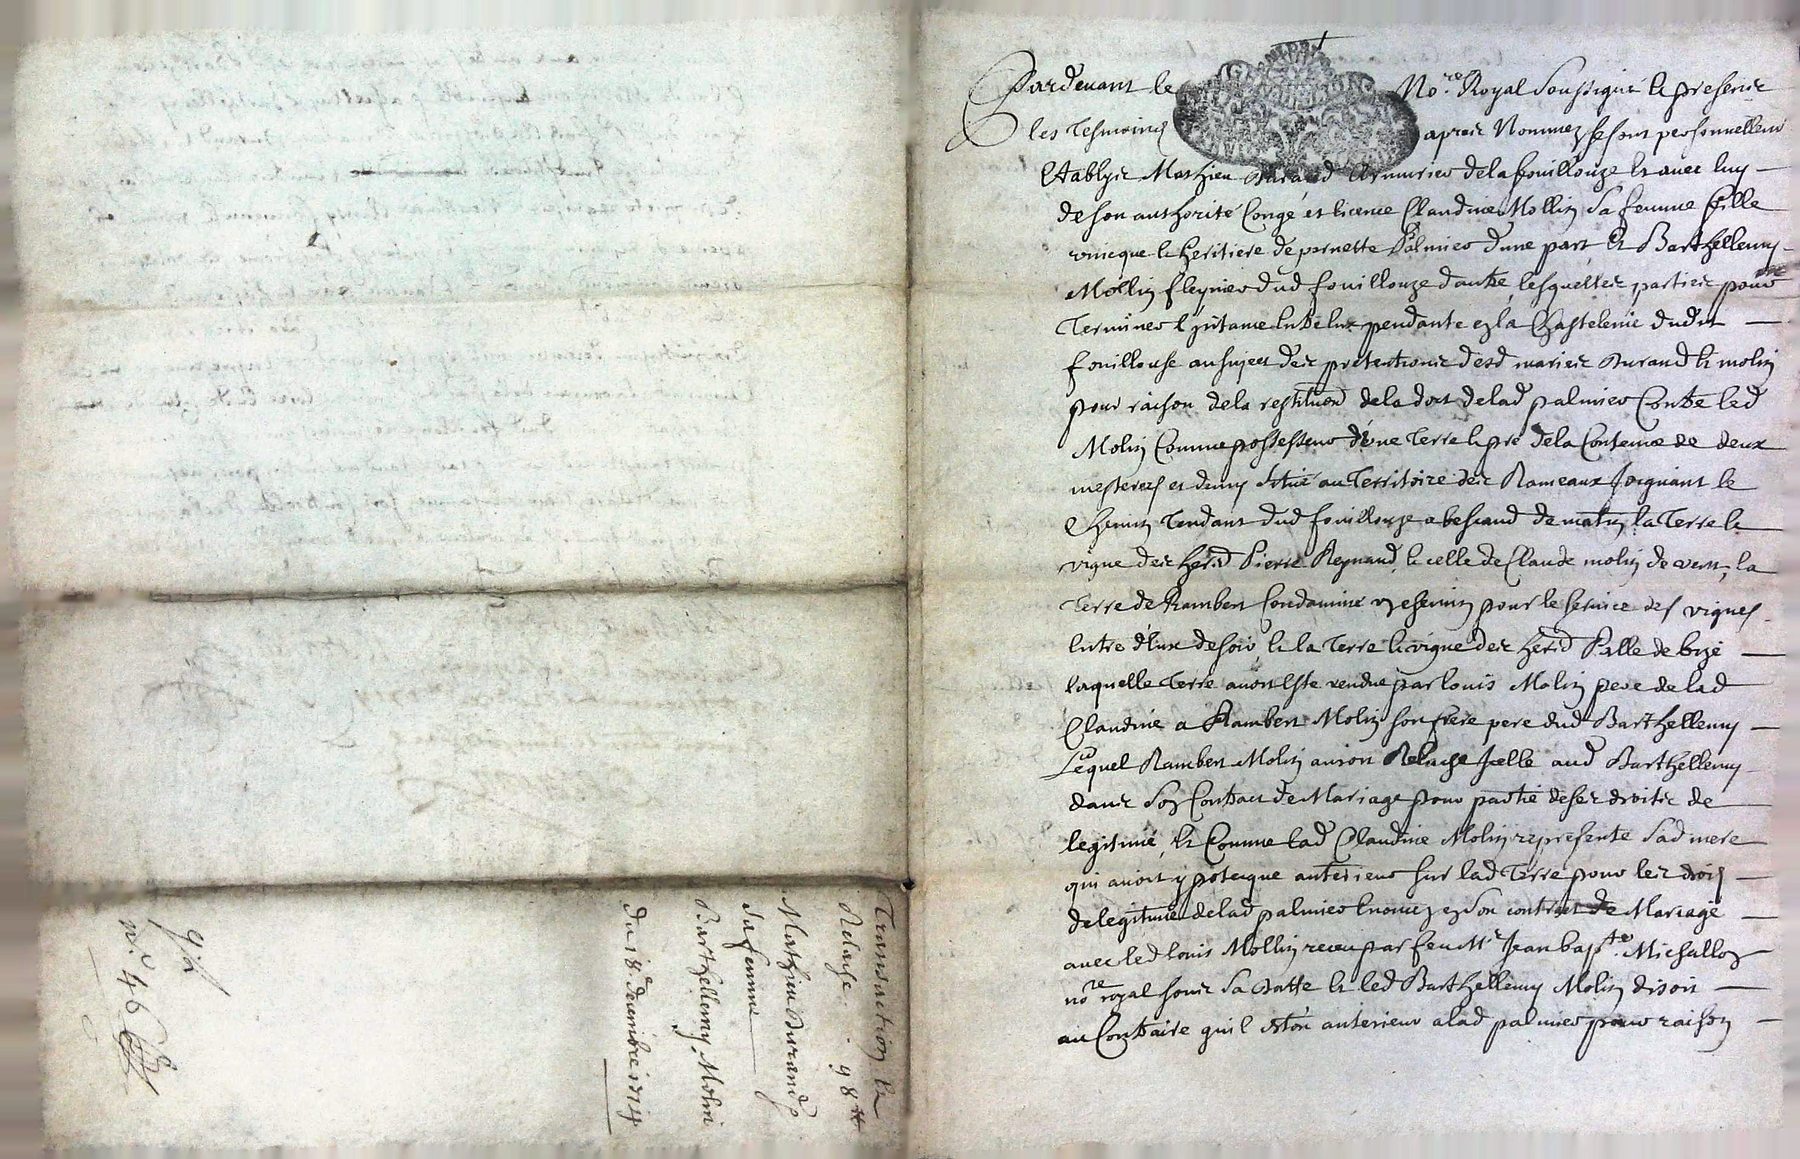 Transaction et
Relache. 98tt
Mathieu Durand &
sa femme
Barthellemy Molin
du 18e decembre 1714
n.o 46
Pardevant le No.re Royal soussigné et presents
les tesmoins apres nommez se sont personnellemt
establys Mathieu Durand armurier de la fouillouze et avec luy
de son authorité congé et licence Claudine Mollin sa femme fille
unicque et heritiere de pernette Palmier dune part et Barthellemy
Mollin dud fouillouze dautre, lesquelles parties pour
terminer linstance entre eux pendante en la Chastelenie dudit
fouillouse au sujet des pretentions desd mariés Durand et molin
pour raison de la restitution de la dot de lad palmier Contre led
Molin Comme possesseur dune terre et pré de la Contenue de deux
mesterees et demy situé au territoire des Rameaux Joignant le
Chemin tendant dud fouillouze de matin, la terre et
vigne des hers d Pierre Reynaud, et celle de Claude molin de vent, la
terre de Rambert Condamine un chemin pour le service des vignes
entre deux de soir et la terre et vigne des herd de bize
laquelle terre avoit esté vendue par louis Molin pere de lad
Claudine a Rambert Molin son frere pere dud Barthellemy
Lequel Rambert Molin auroit Relaché Icelle aud Barthellemy
dans son Contract de Mariage pour partie de ses droits de
legitime, et Comme lad Claudine Molin represente sad mere
qui avoit ypoteque anterieur sur lad terre pour les droits
de legitime de lad palmier enoncez en son contract de Mariage
avec led louis Mollin receu par feu Me Jean bapte. Michallon
no.re royal sous sa datte et led Barthellemy Molin disoit
au Contraire quil estoit anterieur a lad palmier pour raison